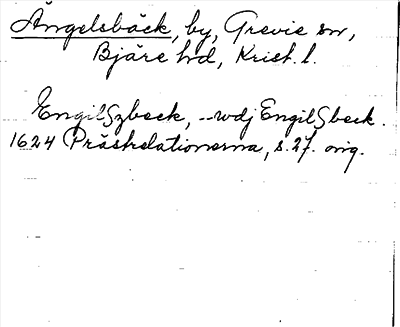 Ängelsbäck, by, Grevie sn,
Bjäre hd, Krist. l.
Engilßzbeck, -- wdj Engilßbeck.
1624 Prästrelationerna, s. 27. orig.